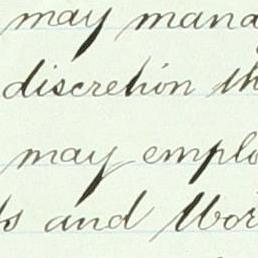 may mana
discretion th
may emplo
ts and Wor